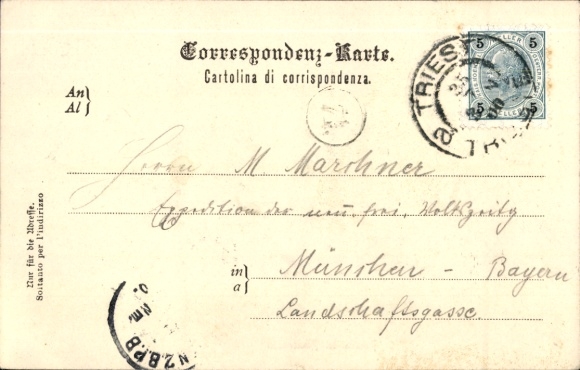 Correspondenz-Karte.
Cartolina di corrispondenza.
5 5
HELLER
5 5
TRIEST
25
An
Al
Herrn M Marchner
Expedition der neu. frei. Volkzeitg
in
a
München - Bayern
Landschaftsgasse.
Nur für die Adresse.
Soltanto per l'indirizzo